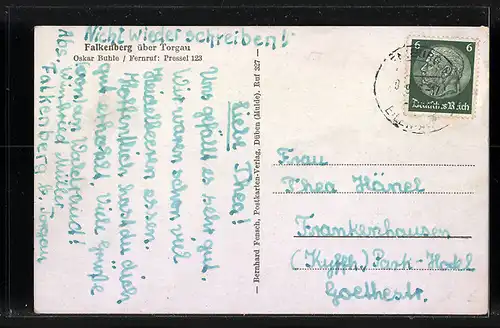 Nicht wieder schreiben!
Falkenberg über Torgau
Oskar Buhle / Fernruf: Pressel 123
Liebe Thea!
Uns gefällt es sehr gut.
Wir waren schon viel
Heidelbeeren essen.
Hoffentlich hast du dich
gut erholt. Viele Grüße
von
Abs. Müller
Falkenberg b. Torgau
Bernhard Funsch, Postkarten-Verlag, Düben (Mulde). Ruf 327
6 6
Deutsches Reich
Frau
Thea Hänel
Frankenhausen
(Kyffh.) Park-Hotel
Goethestr.